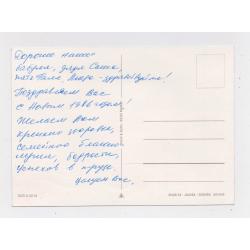 Дорогие наши
бабуля, дядя Саша,
тётя Галя, здравствуйте!
Поздравляем Вас
с Новым 1986 годом!
Желаем Вам
крепкого здоровья,
семейного благопо-
лучия, бодрости,
успехов в труде.
Целуем Вас,